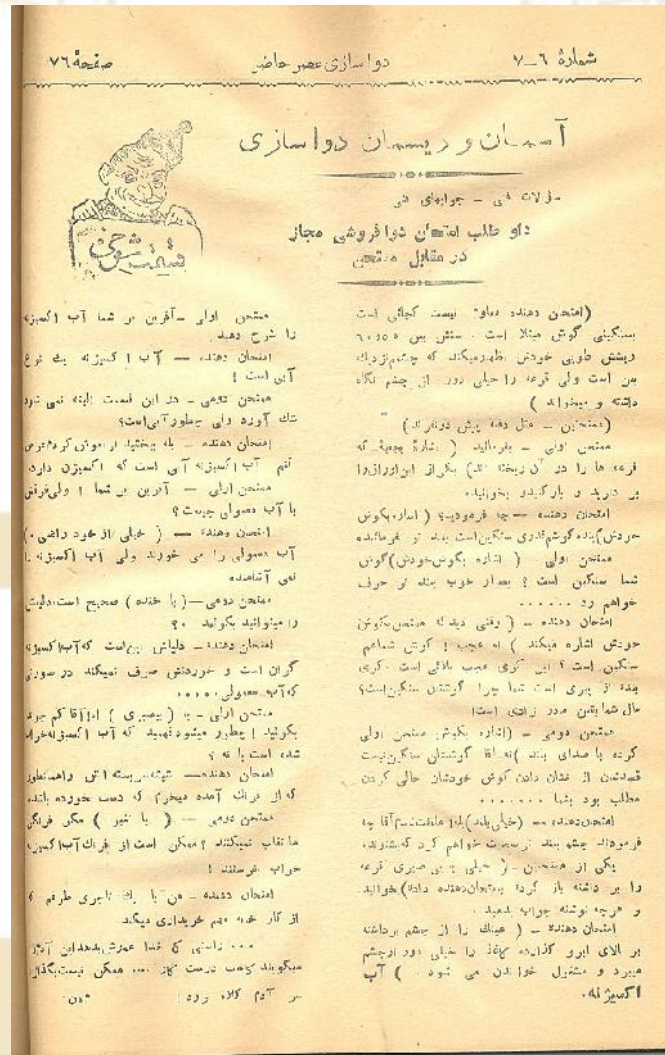 شمارهٔ ۶ـ۷
دواسازی عصر حاضر
صفحهٔ ۷۶
آسمان و ریسمان دواسازی
قسمت شوخی
سؤالات فنی ـ جوابهای فنی
داو طلب امتحان دوافروشی مجاز
در مقابل ممتحن
(امتحن دهنده نیست کجائی است
بسنگینی گوش مبتلا است . سنش بین ۵۰ و ۶۰
ریشش طوبی خودش اظهار میکند که چشم نزدیک
بین است ولی قرعه را خیلی دور از چشم نگاه
داشته و میخواند )
(ممتحنین ـ مثل دفعه پیش دو نفرند)
ممتحن اولی ـ بفرمائید ( اشاره بجعبهٔ که
قرعه ها را در آن ریخته اند) یکی از این اوراق را
بر دارید و باز کنید و بخوانید.
امتحان دهنده ـ چه فرمودید؟ ( اشاره بگوش
خودش) بنده گوشم قدری سنگین است بلند تر بفرمائید
ممتحن اولی ـ ( اشاره بگوش خودش) گوش
شما سنگین است ؟ بسیار خوب بلند تر حرف
خواهم زد ......
امتحان دهنده ـ ( وقتی دید که ممتحن بگوش
خودش اشاره میکند ) به عجب ! گوش شما هم
سنگین است ؟ این کری عجب بلائی است . کری
بنده از پیری است شما چرا گوشتان سنگین است؟
حال شما یقین مادر زادی است!
ممتحن دومی ـ (اشاره بگوش ممتحن اولی
کرده با صدای بلند ) نه آقا گوششان سنگین نیست
قصدشان از نشان دادن گوش خودشان حالی کردن
مطلب بود بشما .......
امتحان دهنده ـ (خیلی بلند) بله ملتفت شدم آقا چه
فرمودند چشم بلند تر صحبت خواهم کرد که بشنوند.
یکی از ممتحنین ـ ( خیلی با بی صبری قرعه
را بر داشته باز کرده بامتحان دهنده داده) بخوانید
و هرچه نوشته جواب بدهید .
امتحان دهنده ـ ( عینک را از چشم برداشته
بر بالای ابرو گذارده کاغذ را خیلی دور از چشم
میبرد و مشغول خواندن می شود . ) آب
اکسیژنه.
ممتحن اولی ـ آفرین بر شما آب اکسیژنه
را شرح دهید
امتحان دهنده ـ آب اکسیژنه یک نوع
آبی است !
ممتحن دومی ـ در این قسمت البته نمی شود
شک آورد ولی چطور آبی است؟
امتحان دهنده ـ بله ببخشید فراموش کردم عرض
کنم آب اکسیژنه آبی است که اکسیژن دارد.
ممتحن اولی ـ آفرین بر شما ! ولی فرقش
با آب معمولی چیست ؟
امتحان دهنده ـ ( خیلی از خود راضی . )
آب معمولی را می خورند ولی آب اکسیژنه را
نمی آشامند
ممتحن دومی ـ ( با خنده ) صحیح است دلیلش
را میتوانید بگوئید .؟
امتحان دهنده ـ دلیلش این است که آب اکسیژنه
گران است و خوردنش صرف نمیکند در صورتی
که آب معمولی .....
ممتحن اولی ـ با ( بیصبری ) آقا کم حرف
بگوئید ! چطور میشود فهمید که آب اکسیژنه خراب
شده است یا نه ؟
امتحان دهنده ـ شیشه سربسته اش را همانطور
که از فرنگ آمده میخرم که دست نخورده باشد.
ممتحن دومی ـ ( با تغیر ) مگر فرنگی
ها تقلب نمیکنند ؟ ممکن است از فرنگ آب اکسیژنه
خراب بفرستند !
امتحان دهنده ـ من با یک تاجری طرفم که
از کار خانه مهم خریداری میکند.
... راستی که خدا عمرش بدهد این آدم
میگویند درست کار ... ممکن نیست بگذارد
سر آدم کلاه برود!